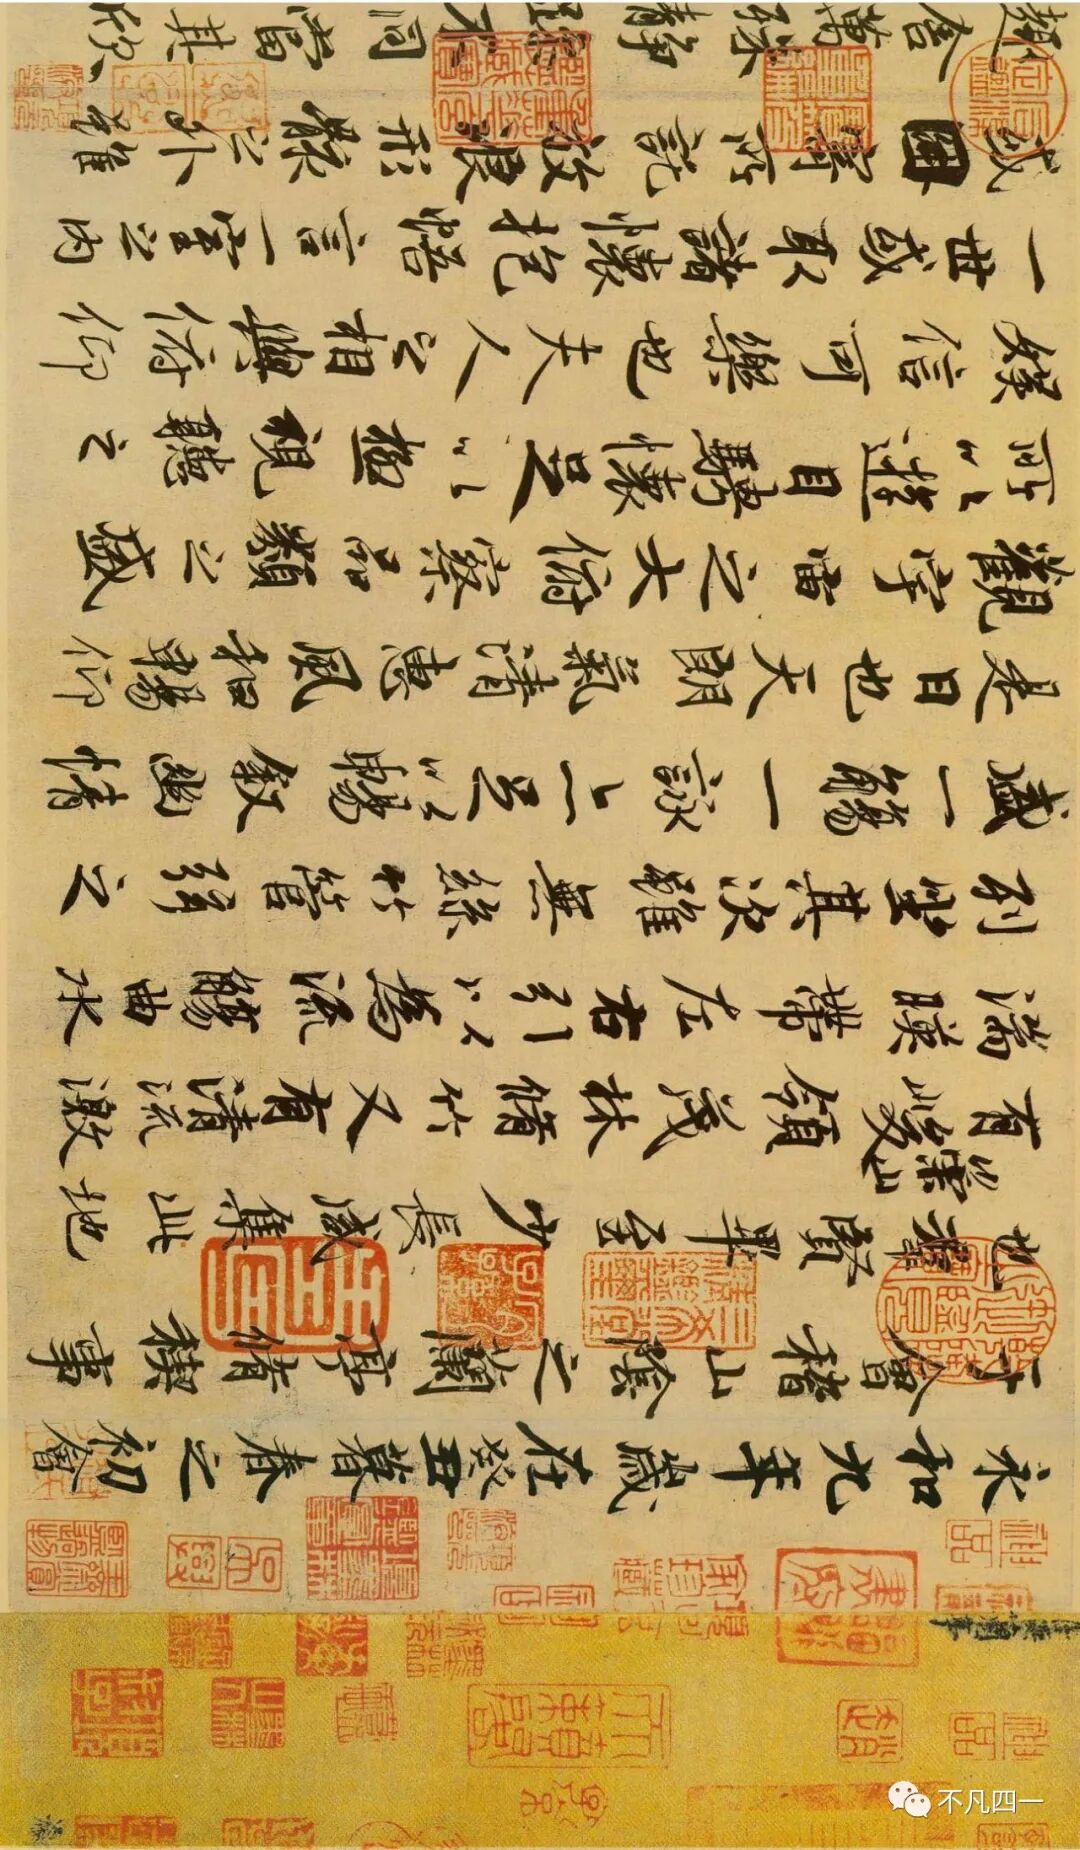 永和九年歲在癸丑暮春之初會
于會稽山陰之蘭亭脩禊事
也群賢畢至少長咸集此地
有崇山峻領茂林脩竹又有清流激
湍暎帶左右引以為流觴曲水
列坐其次雖無絲竹管弦之
盛一觴一詠亦足以暢敘幽情
是日也天朗氣清惠風和暢仰
觀宇宙之大俯察品類之盛
所以遊目騁懷足以極視聽之
娛信可樂也夫人之相與俯仰
一世或取諸懷抱悟言一室之內
或因寄所託放浪形骸之外雖
趣舍萬殊靜躁不同當其欣
不凡四一